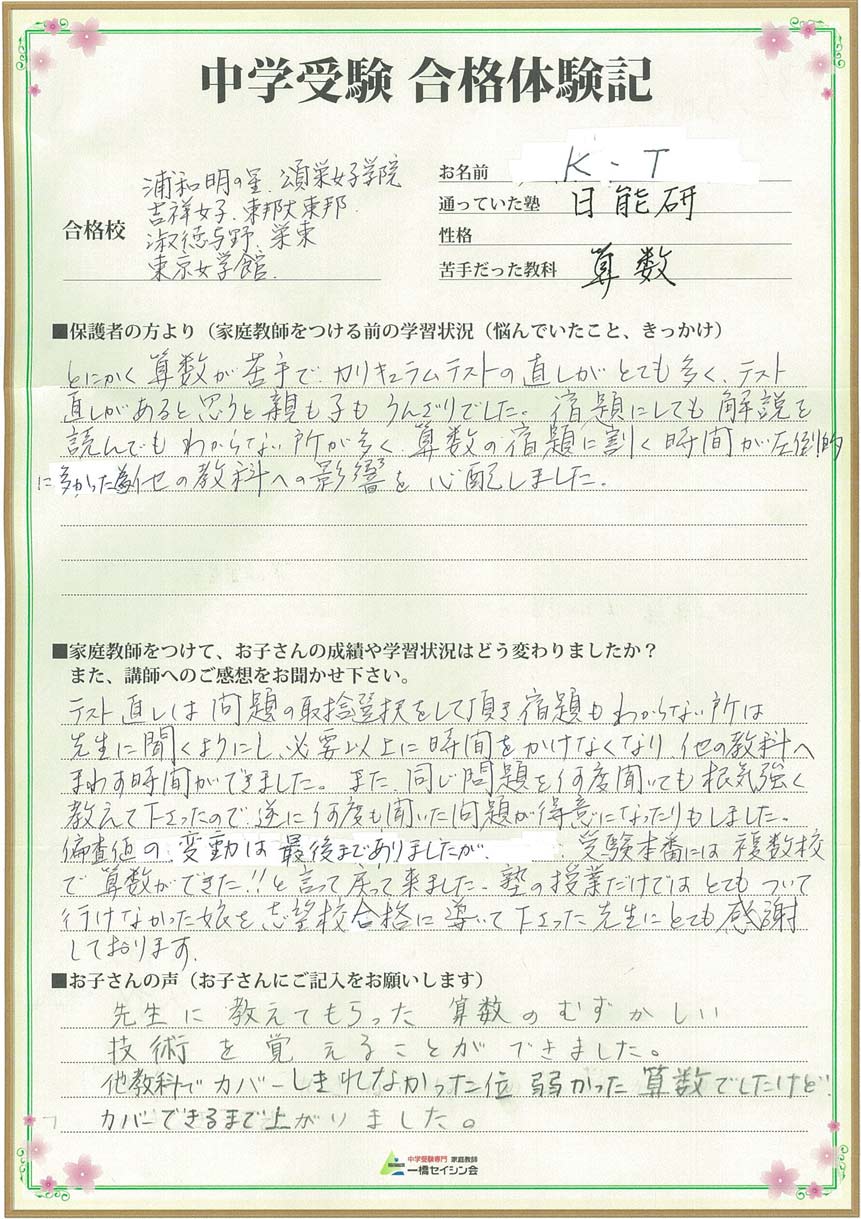 中学受験 合格体験記
合格校
浦和明の星、頌栄女子学院
吉祥女子、東邦大東邦
淑徳与野、栄東
東京女学館
お名前 K・T
通っていた塾 日能研
性格
苦手だった教科 算数
■保護者の方より(家庭教師をつける前の学習状況(悩んでいたこと、きっかけ)
とにかく算数が苦手で、カリキュラムテストの直しがとても多く、テスト
直しがあると思うと親も子もうんざりでした。宿題にしても解説を
読んでもわからない所が多く、算数の宿題に割く時間が圧倒的
に多かった為他の教科への影響を心配しました。
■家庭教師をつけて、お子さんの成績や学習状況はどう変わりましたか?
また、講師へのご感想をお聞かせ下さい。
テスト直しは問題の取捨選択をして頂き宿題もわからない所は
先生に聞くようにし、必要以上に時間をかけなくなり他の教科へ
まわす時間ができました。また、同じ問題を何度聞いても根気強く
教えて下さったので、逆に何度も聞いた問題が得意になったりもしました。
偏差値の変動は最後までありましたが、受験本番には複数校
で算数ができた!!と言って戻って来ました。塾の授業だけではとてもついて
行けなかった娘を志望校合格に導いて下さった先生にとても感謝
しております。
■お子さんの声(お子さんにご記入をお願いします)
先生に教えてもらった算数のむずかしい
技術を覚えることができました。
他教科でカバーしきれなかった位弱かった算数でしたけど、
カバーできるまで上がりました。
中学受験専門 家庭教師
一橋セイシン会